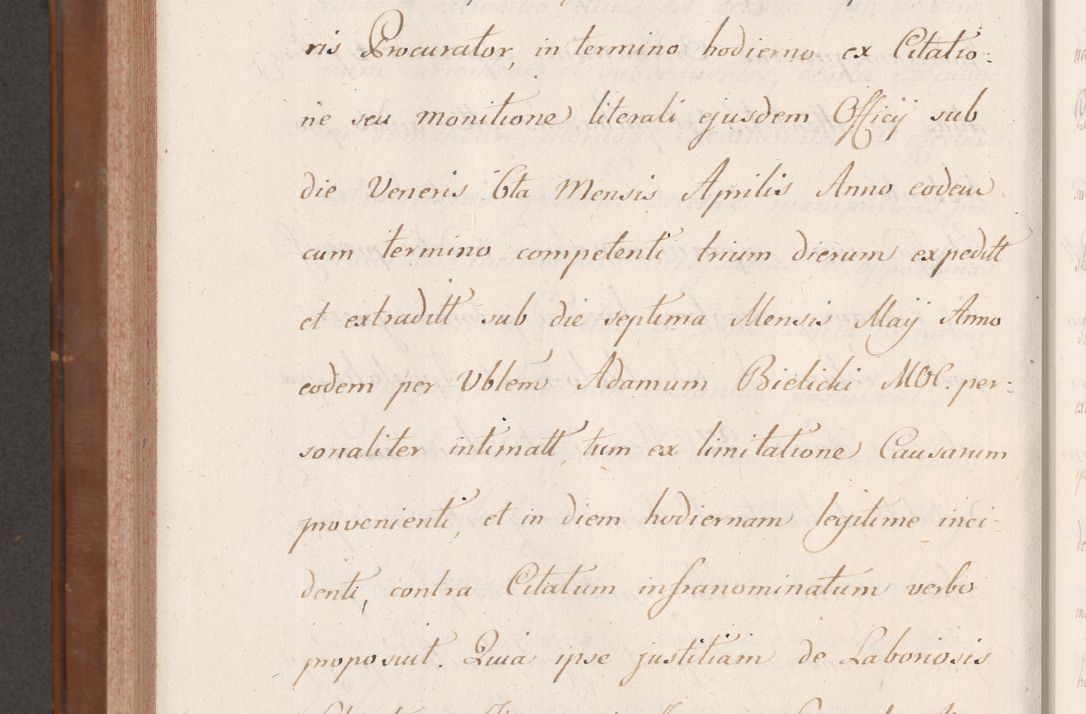 ris Procurator, in termino hodierno ex Citatio:
ne seu monitione literali ejusdem Officij sub
die Veneris 6ta Mensis Aprilis Anno eodem
cum termino competenti trium dierum expeditt
et extraditt sub die septima Mensis Maij Anno
eodem per Vblem Adamum Bielicki MOC. per:
sonaliter intimatt, tum ex limitatione Causarum
provenienti, et in diem hodiernam legitime inci:
denti, contra Citatum infranominatum verbo
proposuit. Quia ipse justitiam de Laboriosis